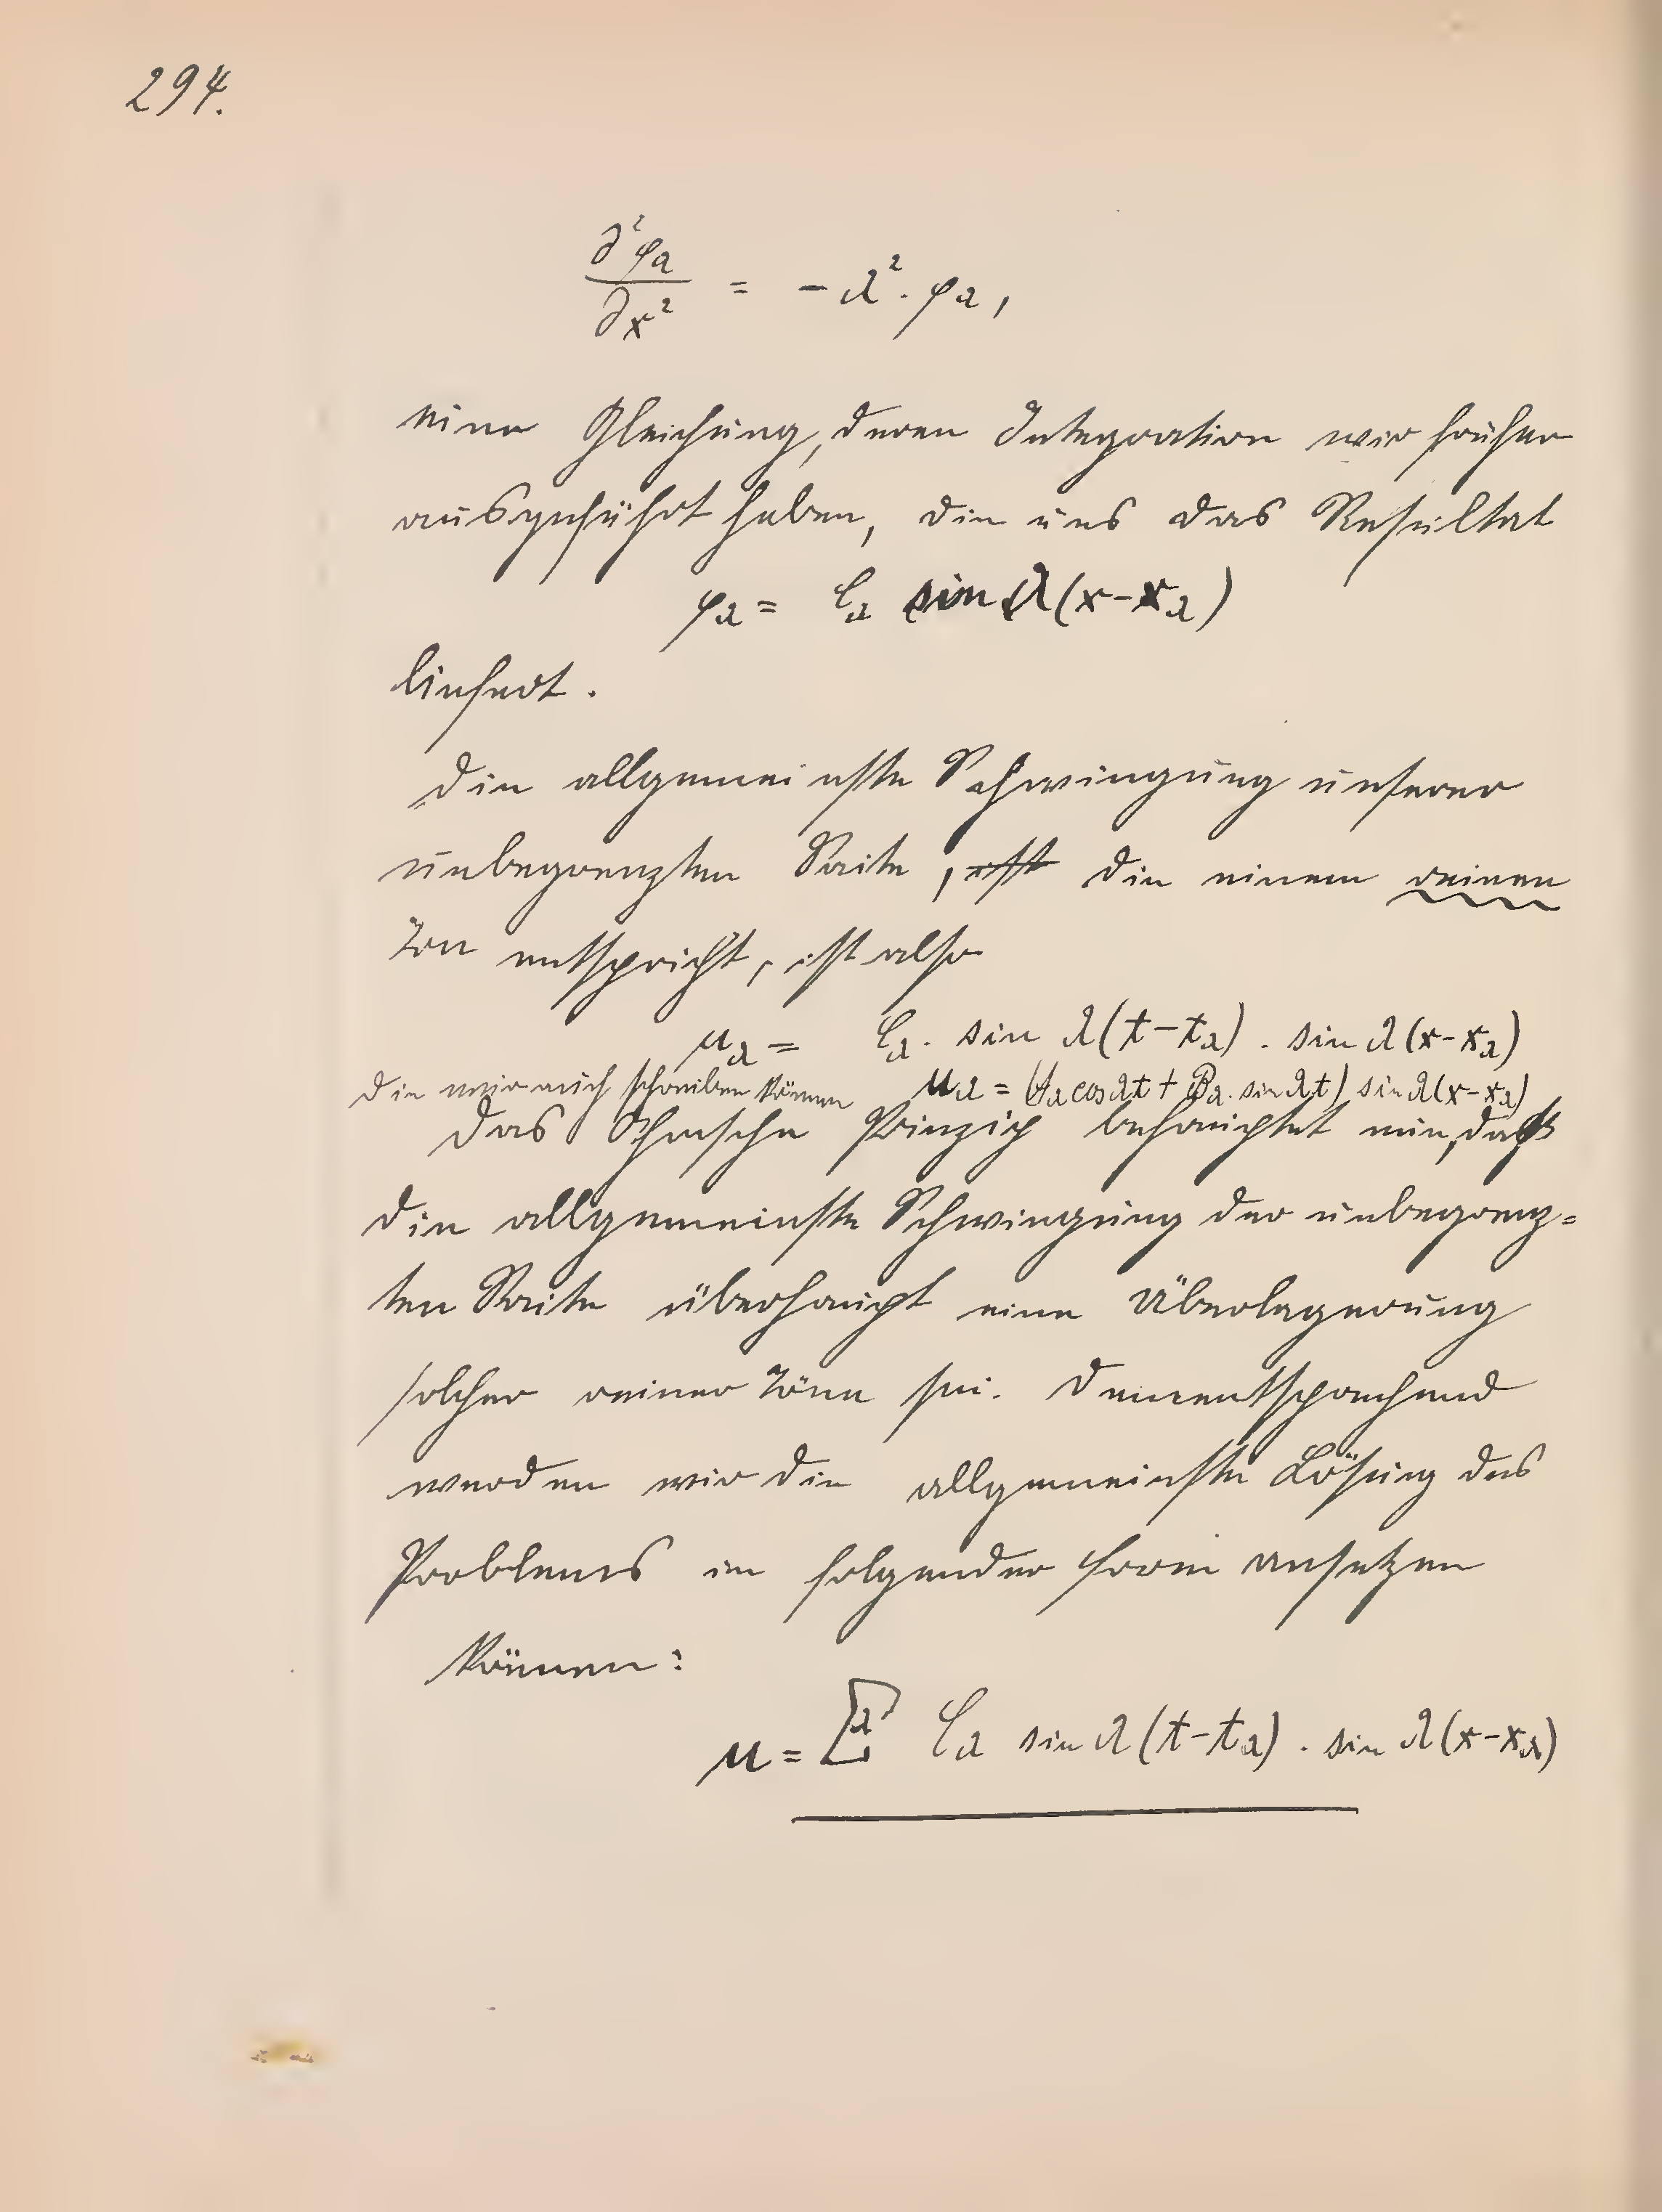 294.
∂²φ_λ / ∂x² = − λ² · φ_λ ,
eine Gleichung, deren Integration wir früher
ausgeführt haben, die uns das Resultat
φ_λ = C_λ sin λ(x−x_λ)
liefert.
Die allgemeinste Schwingung unserer
unbegrenzten Saite, ist die einem reinen
Ton entspricht, ist also
u_λ = C_λ · sin λ(t−t_λ) · sin λ(x−x_λ)
die wir auch schreiben können u_λ = (A_λ cos λt + B_λ · sin λt) sin λ(x−x_λ)
Das Ohmsche Prinzip behauptet nun, daß
die allgemeinste Schwingung der unbegrenz=
ten Saite überhaupt eine Überlagerung
solcher reiner Töne sei. Dementsprechend
werden wir die allgemeinste Lösung des
Problems in folgender Form ansetzen
können:
u = Σ_λ C_λ sin λ(t−t_λ) · sin λ(x−x_λ)